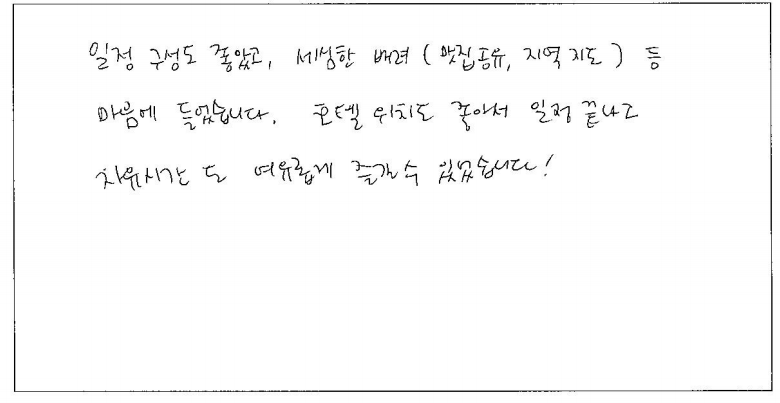 일정 구성도 좋았고, 세심한 배려 (맛집공유, 지역 지도) 등
마음에 들었습니다. 호텔 위치도 좋아서 일정 끝나고
자유시간 도 여유롭게 즐길 수 있었습니다!